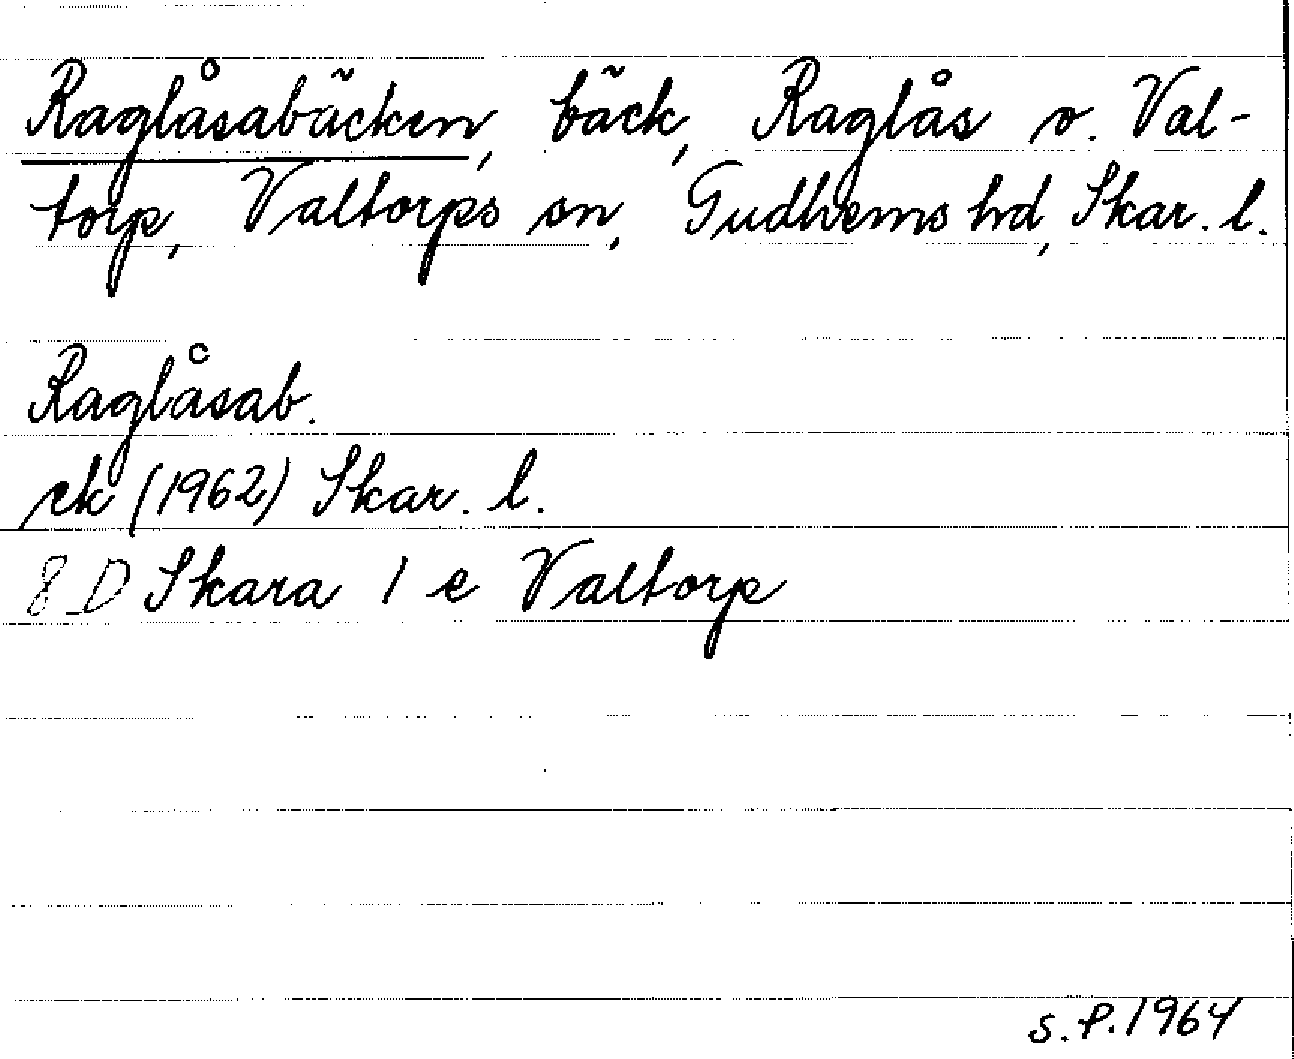 Raglåsabäcken, bäck, Raglås o. Val-
torp, Valtorps sn, Gudhems hd, Skar. l.
Raglåsab.
ek (1962) Skar. l.
8 D Skara 1 e Valtorp
S.P. 1964